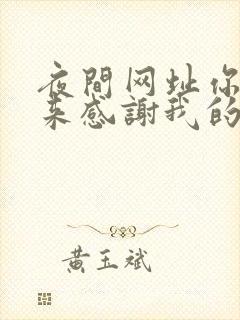 夜間网址你
来感謝我的
黄玉斌